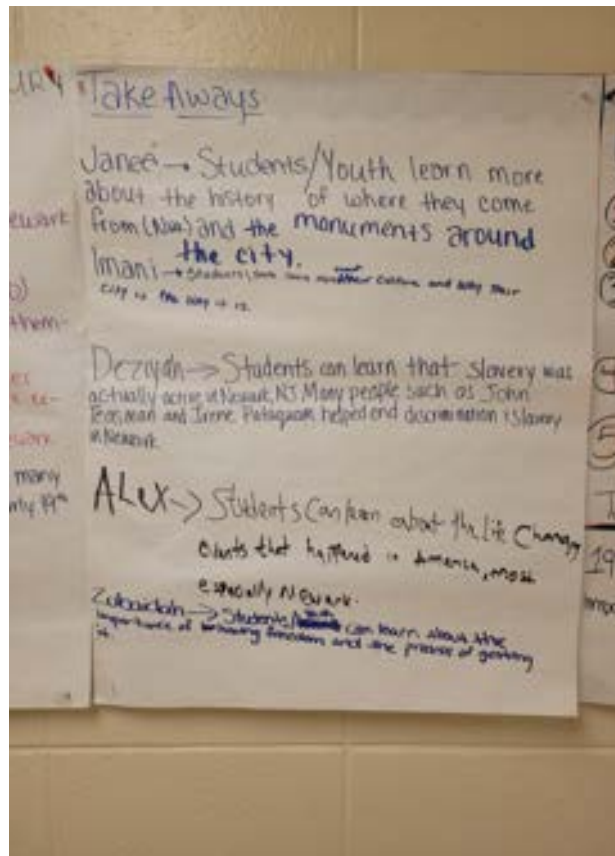 Take Aways
Janeé → Students/Youth learn more
about the history of where they come
from (Nwk) and the monuments around
the city.
Imani → Students can learn culture and why their
city is the way it is.
Deziyah → Students can learn that slavery was
actually active in Newark, NJ. Many people such as John
and Irene helped end discrimination & slavery
in Newark
ALEX → Students Can learn about the life Changing
events that happened in America, most
especially Newark.
→ Students/ can learn about the
importance of freedom and the process of getting
it.
ewark
them-
many
rly 19th
3
4
5
19